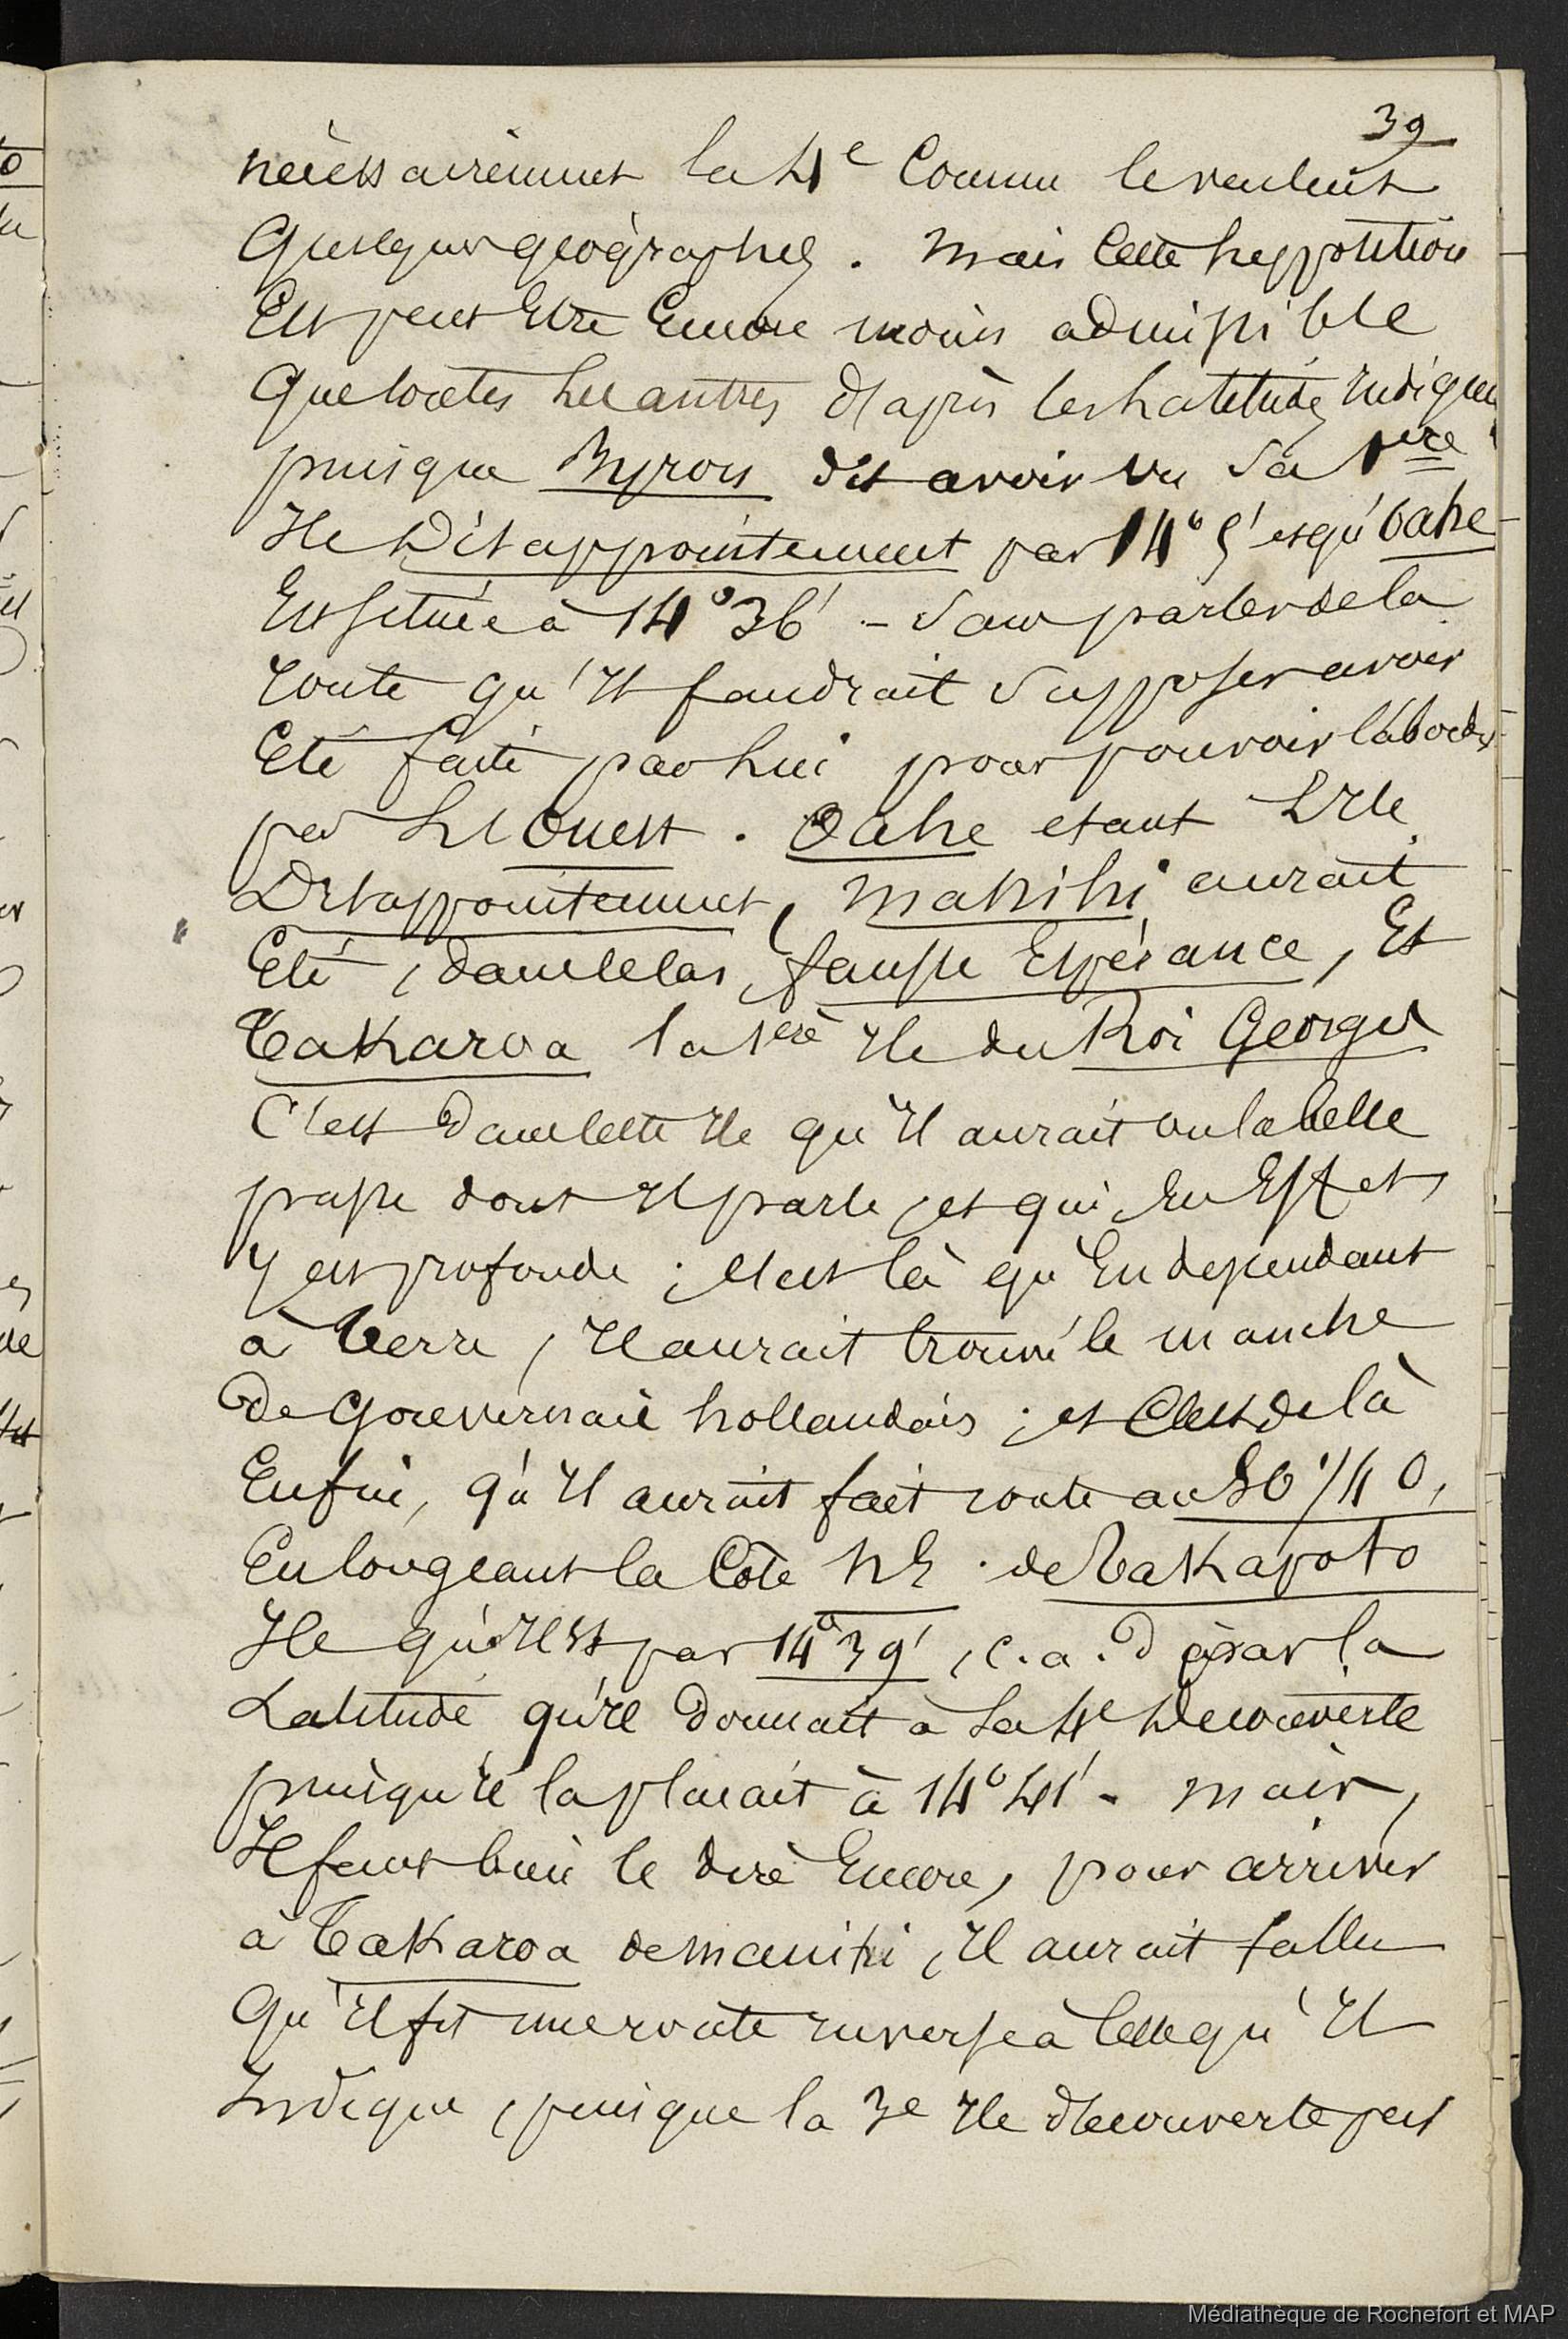 39
nécessairement la 4e Comme le veulent
Quelques géographes. Mais Cette hyppotition
Est peut Etre Encore moins admissible
Que toutes les autres d'après les Latitudes Indiquées
puisque Byron dit avoir vu Sa 1ere
Ile Désappointement par 14° 5' et qu'Oahe
Est située à 14° 36' - Sans parler de la
route qu'Il faudrait Supposer avoir
Eté faite par Lui pour pouvoir l'aborder
par L'Ouest. Oahe etant L'Ile
Désappointement, Manihi aurait
Eté, dans le cas, fausse Espérance, Et
Takaroa la 1ere Ile du Roi Georges
C'est dans cette Ile qu'Il aurait vu la belle
passe dont Il parle, et qui, En Effet,
y est profonde ; C'est là qu'En dependant
à Terre, Il aurait trouvé le manche
de gouvernail hollandais ; et C'est de là
Enfin, qu'Il aurait fait route au SO 1/4 O,
En longeant la Côte NE. de Takapoto
Ile qui Est par 14° 39', c.a.d par la
Latitude qu'Il donnait à Sa 4e Découverte
puisqu'Il la plaçait à 14° 41'. Mais,
Il faut bien le dire Encore, pour arriver
à Takaroa de Manihi, Il aurait fallu
Qu'Il fit une route inverse à Celle qu'Il
Indique, puisque la 3e Ile découverte par
Médiathèque de Rochefort et MAP